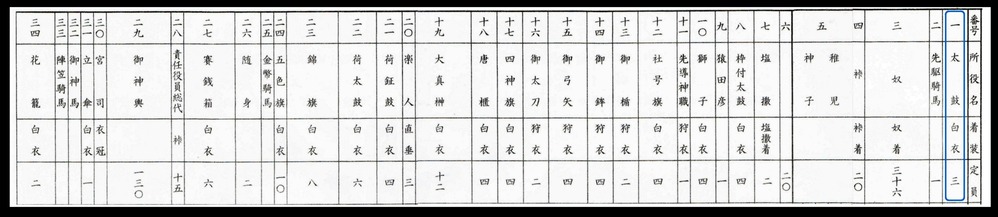 番号 所役名 着装 定員
一 太鼓 白衣 三
二 先駆騎馬 一
三 奴 奴着 三十六
四 裃 裃着 二〇
五 稚児 神子
六 二〇
七 塩撒 塩撒着 二
八 枠付太鼓 白衣 四
九 猿田彦 一
一〇 獅子 白衣 四
十一 先導神職 狩衣 一
十二 社号旗 白衣 四
十三 御楯 狩衣 四
十四 御鉾 狩衣 四
十五 御弓矢 狩衣 四
十六 御太刀 狩衣 二
十七 四神旗 白衣 四
十八 唐櫃 白衣 四
十九 大真榊 白衣 十二
二〇 楽人 直垂 三
二一 荷鉦鼓 白衣 四
二二 荷太鼓 白衣 六
二三 錦旗 白衣 八
二四 五色旗 白衣 一〇
二五 金幣騎馬
二六 随身 二
二七 賽銭箱 白衣 六
二八 責任役員総代 裃 十五
二九 御神輿 白衣 一三〇
三〇 宮司 衣冠
三一 立傘 白衣 一
三二 御神馬
三三 陣笠騎馬
三四 花籠 白衣 二